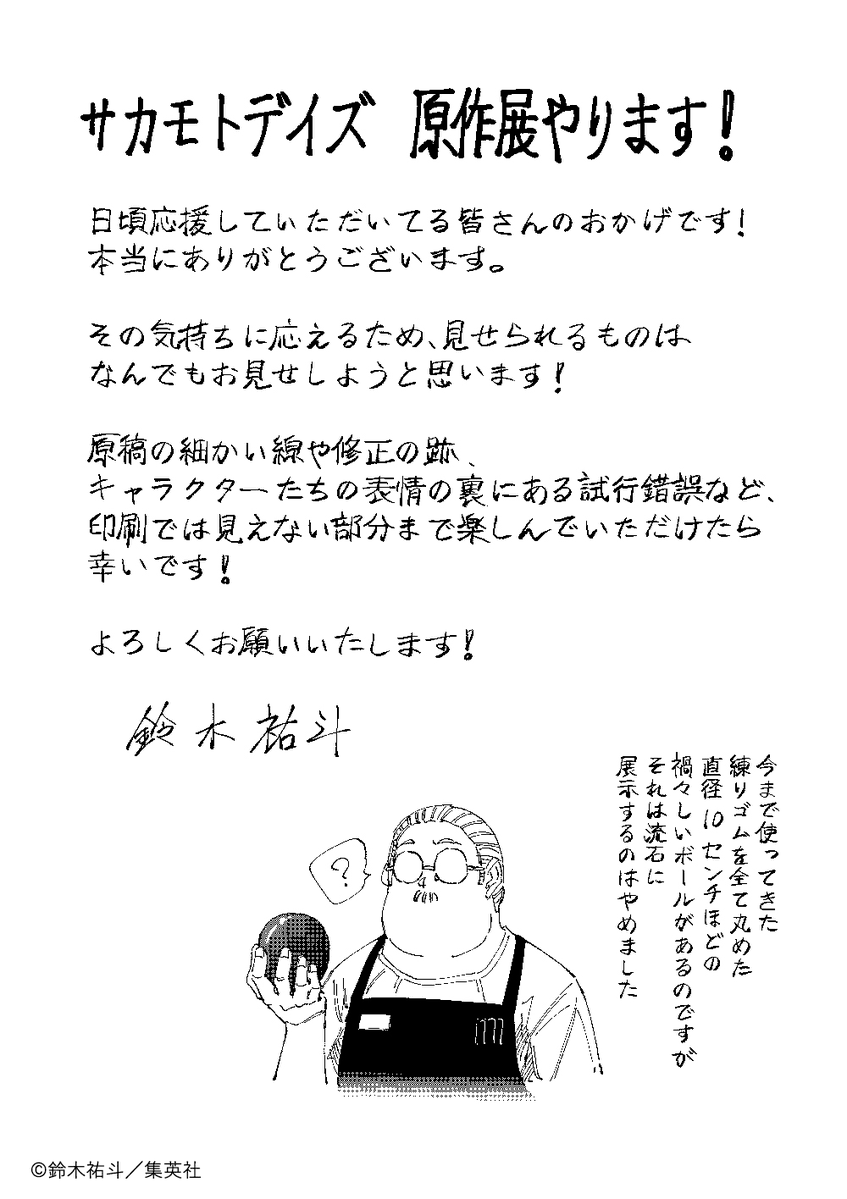 サカモトデイズ 原作展やります!
日頃応援していただいてる皆さんのおかげです!
本当にありがとうございます。
その気持ちに応えるため、見せられるものは
なんでもお見せしようと思います!
原稿の細かい線や修正の跡、
キャラクターたちの表情の裏にある試行錯誤など、
印刷では見えない部分まで楽しんでいただけたら
幸いです!
よろしくお願いいたします!
鈴木祐斗
今まで使ってきた
練りゴムを全て丸めた
直径10センチほどの
禍々しいボールがあるのですが
それは流石に
展示するのはやめました
?
©鈴木祐斗/集英社